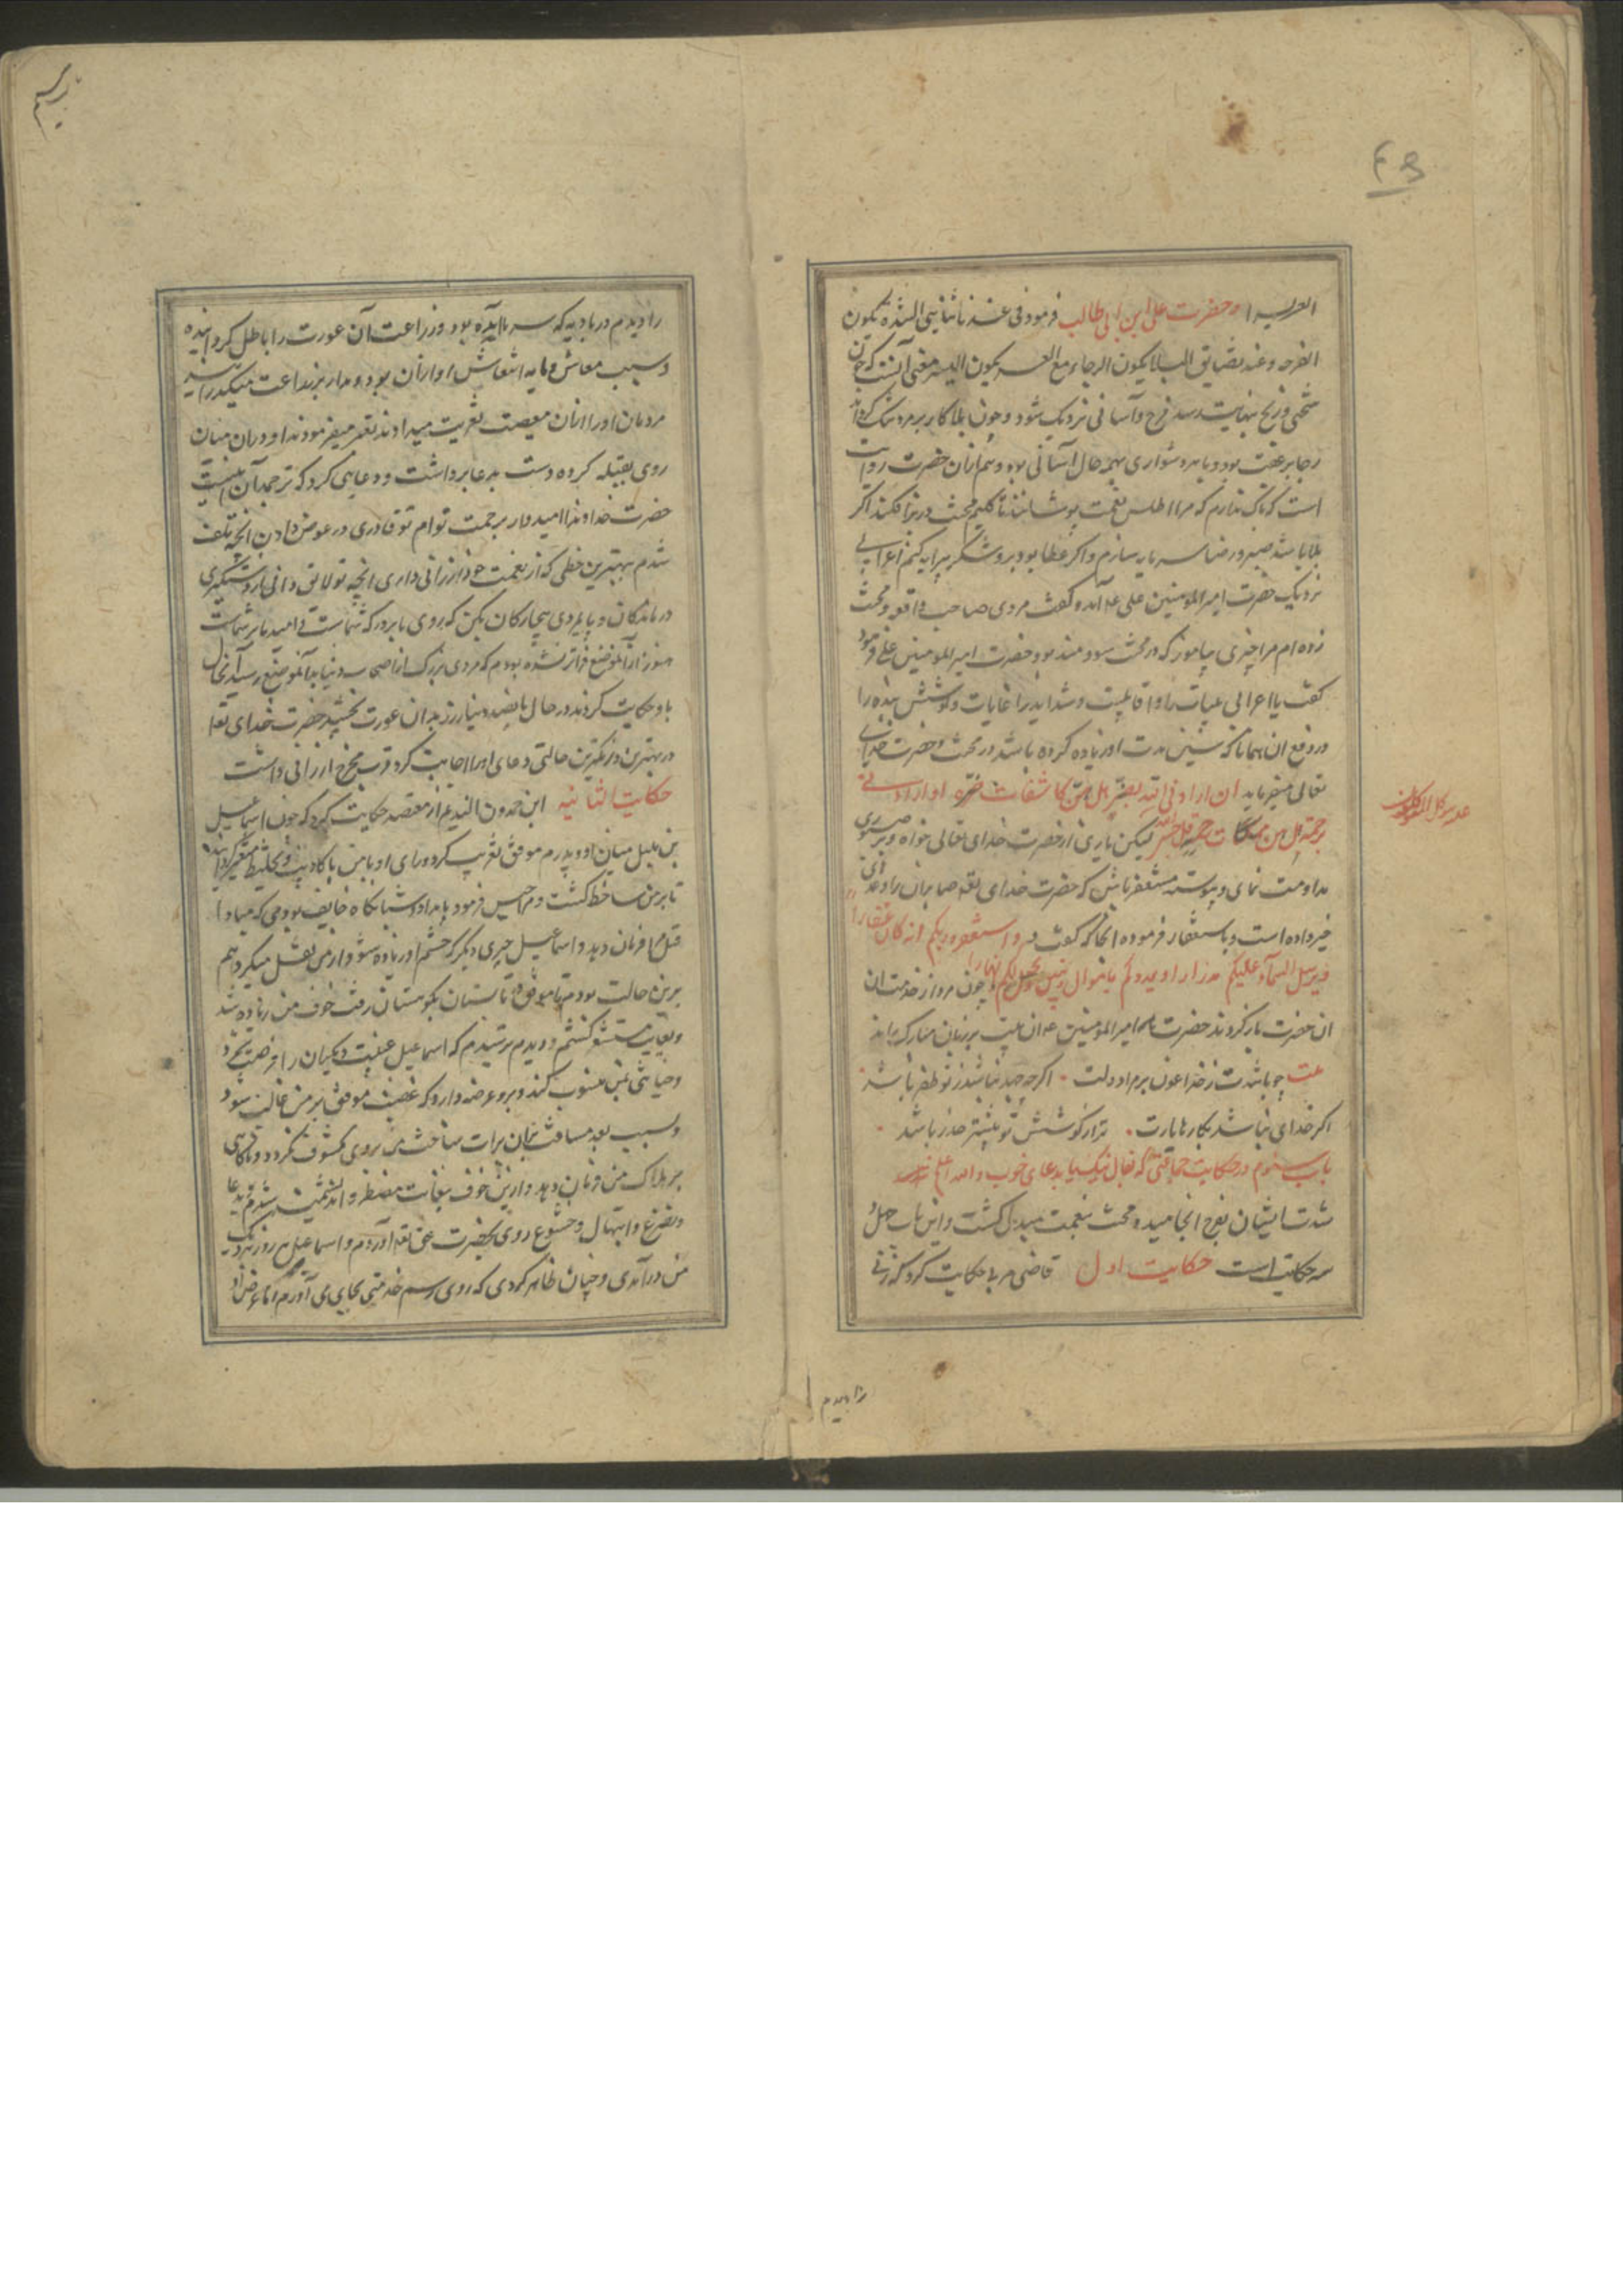 ۴۵
العسر یسرا و حضرت علی ابن ابی طالب فرمود فی عند تناهی الشدة یکون
الفرجه و عند تضایق البلا یکون الرجاء و مع العسر یکون الیسر معنی آنست که چون
سختی و رنج بنهایت رسد فرج و آسانی نزدیک شود و چون بلا کار بر مرد تنک کرداند
رجا بر عقب بود و با هر دشواری بهمه حال آسانی بود و هم از آن حضرت روایت
است که باک ندارم که مرا اطلس نعمت پوشانند تا کلیم محنت در بر افکند اکر
بلا باشد صبر و رضا سرمایه سازم و اکر عطا بود بر و شکر پیرایه کنم اعرابی
نزدیک حضرت امیر المومنین علی ع آمد و کفت مردی صاحب واقعه و محنت
زده ام مرا چیزی بیاموز که در محنت سودمند بود حضرت امیر المومنین علی فرمود
کفت یا اعرابی محنت را اوقاتیست و شداید را غایات و کوشش بنده را
در دفع آن همانا که پیش از مدت او زیاده کرده باشد در محنت و حضرت خدای
تعالی میفرماید ان ارادنی الله بضر هل هن کاشفات ضره او ارادنی
برحمة هل هن ممسکات رحمته قل حسبی الله لیکن یاری از حضرت خدای تعالی خواه و بر صبوری
مداومت نمای و پیوسته مستغفر باش که حضرت خدای تعه صابران را وعدهٔ
خیر داده است و باستغفار فرموده آنجا که کفت و استغفروا ربکم انه کان غفارا
فیرسل السمآء علیکم مدرارا و یمددکم باموال و بنین و یجعل لکم انهارا چون مرد از خدمت آن
آن حضرت باز کردید حضرت امیر المومنین ع این بیت بر زبان مبارکه راند
بیت چو باشدت ز خدا عون بر مراد دلت ۰ اکر چه جهد نباشد ز تو ظفر باشد ۰
اکر خدای نباشد بکارها یارت ۰ ترا ز کوشش تو بیشتر حذر باشد ۰
باب سیوم در حکایت جماعتی که بفال نیک یا بدعای خوب و الله اعلم
شدت ایشان بفرح انجامیده و محنت بنعمت مبدل کشت و این باب چهل و
سه حکایتست حکایت اول قاضی مریی حکایت کرد که زنی
را دیدم
را دیدم در بادیه که سرما آمده بود و زراعت آن عورت را باطل کردانیده
و سبب معاش و مایه انتعاش او از آن بود و مدار بزراعت میکذرانید
مردمان او را از آن مصیبت تعزیت میدادند و تعمیر میفرمودند او در آن میان
روی بقبله کرده دست بدعا برداشت و دعایی کرد که ترجمه آن اینست
حضرت خداوندا امیدوار برحمت توام تو قادری در عوض دادن انچه تلف
شدم بهترین حظی که از نعمت خود ارزانی داری انچه تو لایق دانی یار و دستکیری
درماندکان و پایمردی بیچارکان بکن که روی ما بر درکه شماست و امید ما بر شماست
هنوز از آن موضع فراتر نشده بودم که مردی بزرک از اصحاب دنیا بدآن موضع رسید آن حال
با او حکایت کردند در حال پانصد دینار زر بدان عورت بخشید حضرت خدای تعا
در بهترین و نزدیکترین حالتی دعای او را اجابت کرد و فرج ارزانی داشت
حکایت الثانیه ابن حمدون الندیم از معتضد حکایت کرد که چون اسماعیل
بن بلبل میان او و پدرم موفق تقریب کرد و رای او با من باکاذیب و تخلیط متغیر کردانید
تا بر من ساخط کشت و مرا حبس فرمود بامداد و شبانکاه خایف بودمی که مبادا
قتل مرا فرمان دهد و اسماعیل چیزی دیکر که خشم او زیاده شود از من نقل میکرد هم
برین حالت بودم تا موفق در تابستان بکوهستان رفت خوف من زیاده شد
و بغایت مستشعر کشتم و ترسیدم که اسماعیل غیبت دیکران را فرصت شمرد
و خیانتی بمن منسوب کند و برو عرضه دارد که غضب موفق بر من غالب شود
و سبب بعد مسافت بران براءت ساحت من بر وی مکشوف نکردد و ناکاهی
بر هلاک من فرمان دهد و ازین خوف بغایت مضطر و اندیشمند شدم بدعا
و تضرع و ابتهال و خشوع روی بحضرت حق تعه آوردم و اسماعیل هر روز نزدیک
من درآمدی و چنان ظاهر کردی که روی رسم خدمتی بجای می آورم اما غرض او